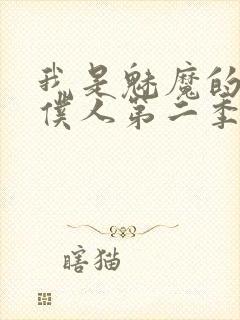 我是魅魔的
僕人第二季
瞎猫